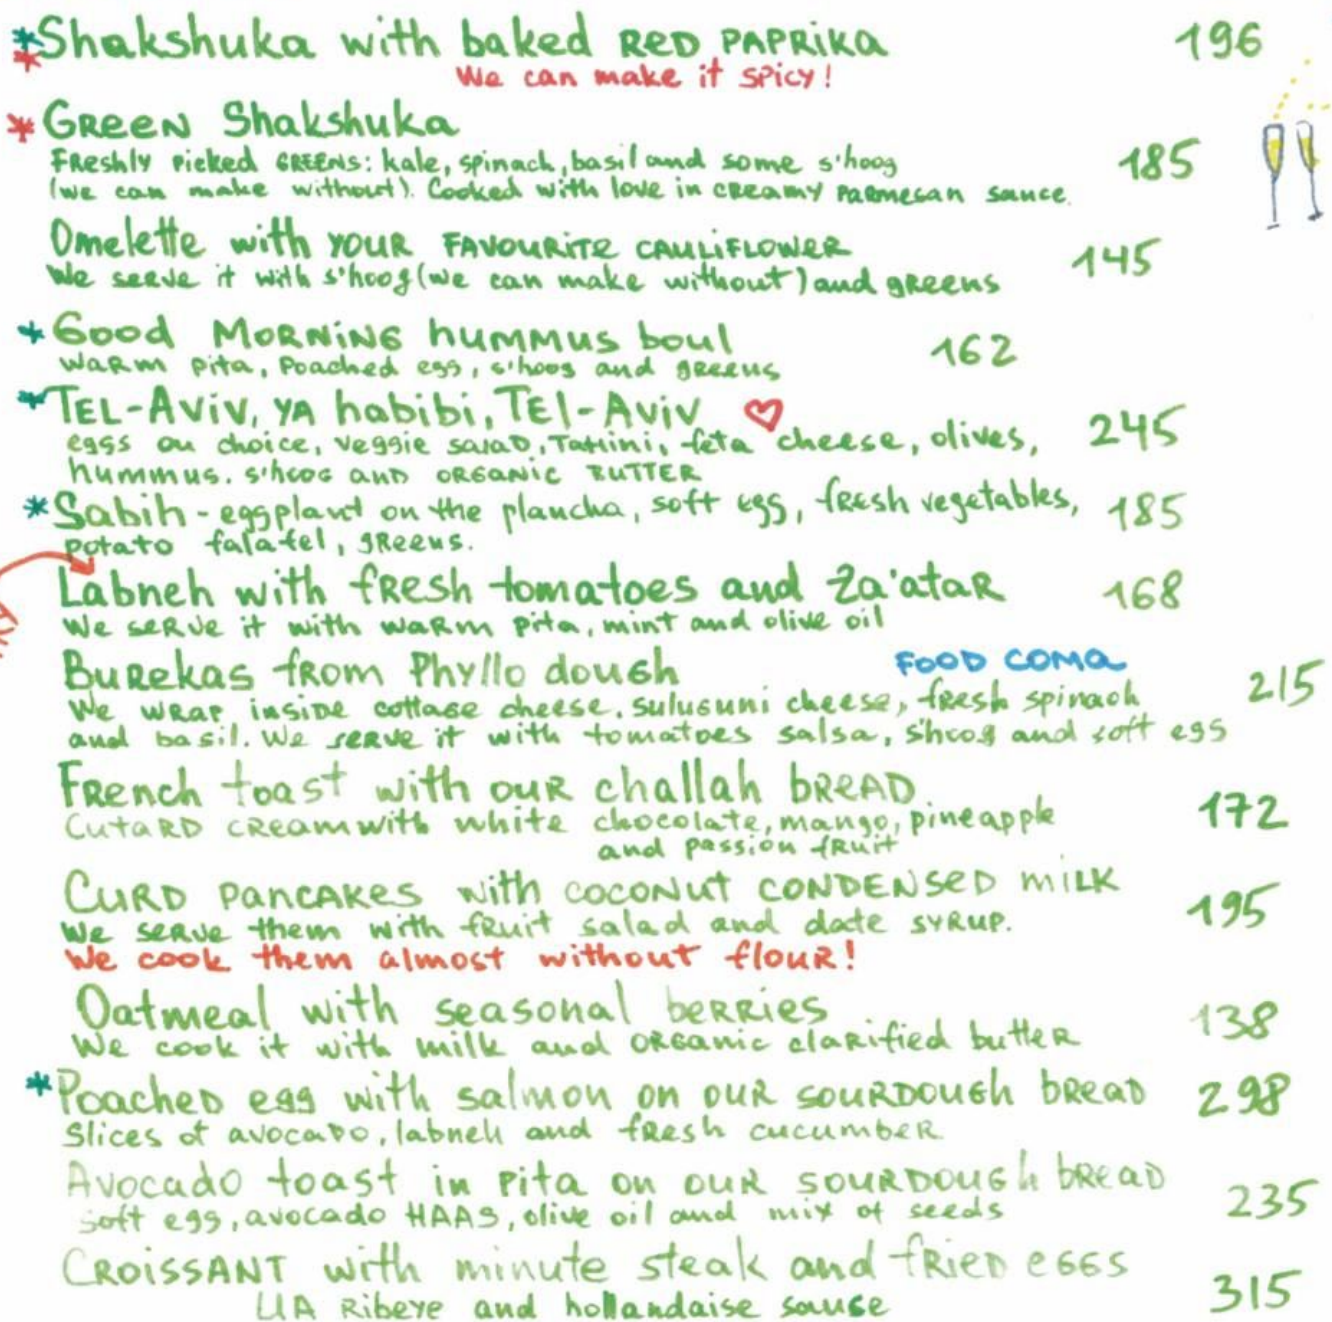 *Shakshuka with baked RED PAPRIKA 196
* We can make it spicy!
* GREEN Shakshuka
Freshly picked GREENS: kale, spinach, basil and some s'hoog 185
(we can make without). Cooked with love in creamy parmesan sauce.
Omelette with YOUR FAVOURITE CAULIFLOWER 145
We serve it with s'hoog (we can make without) and greens
*Good MORNING hummus boul 162
warm pita, poached egg, s'hoog and greens
*TEL-AViV, YA habibi, TEl-AViV
eggs on choice, veggie salad, Tahini, feta cheese, olives, 245
hummus. s'hoog and ORGANIC BUTTER
*Sabih - eggplant on the plancha, soft egg, fresh vegetables, 185
potato falafel, greens.
Labneh with fresh tomatoes and Za'atar 168
We serve it with warm pita, mint and olive oil
Burekas from Phyllo dough FOOD COMA 215
We wrap inside cottage cheese. suluguni cheese, fresh spinach
and basil. We serve it with tomatoes salsa, s'hoog and soft egg
French toast with our challah bREAD 172
CutaRD cream with white chocolate, mango, pineapple
and passion fruit
CURD PANCAKES with COCONUT CONDENSED MILK 195
We serve them with fruit salad and date syrup.
We cook them almost without flour!
Oatmeal with seasonal berries 138
We cook it with milk and organic clarified butter
*Poached egg with salmon on our sourdough bread 298
Slices of avocado, labneh and fresh cucumber
Avocado toast in pita on our sourdough bread 235
soft egg, avocado HAAS, olive oil and mix of seeds
CROISSANT with minute steak and fried eggs 315
UA Ribeye and hollandaise sause